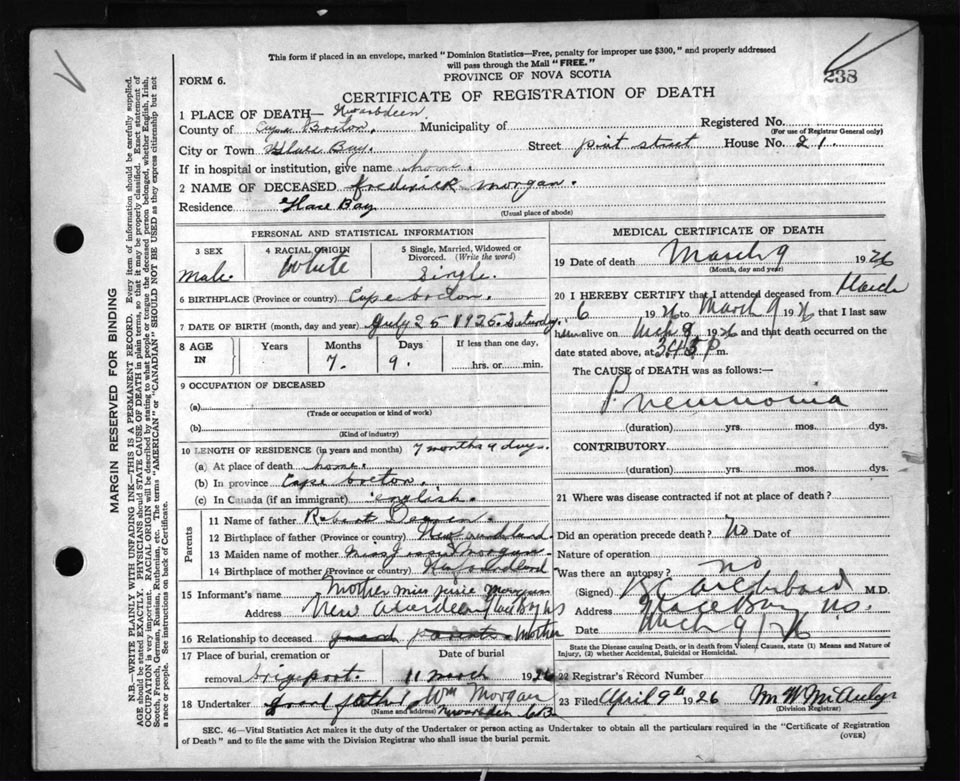 This form if placed in an envelope, marked "Dominion Statistics—Free, penalty for improper use $300," and properly addressed
will pass through the Mail "FREE."
FORM 6.
PROVINCE OF NOVA SCOTIA
238
CERTIFICATE OF REGISTRATION OF DEATH
1 PLACE OF DEATH—
Registered No.
(For use of Registrar General only)
County of Cape Breton. Municipality of
City or Town Glace Bay. Street pint street House No. 21.
If in hospital or institution, give name home.
2 NAME OF DECEASED frederick morgan.
Residence Glace Bay
(Usual place of abode)
PERSONAL AND STATISTICAL INFORMATION
3 SEX
Male.
4 RACIAL ORIGIN
White
5 Single, Married, Widowed or Divorced. (Write the word)
Single.
6 BIRTHPLACE (Province or country) Cape breton.
7 DATE OF BIRTH (month, day and year) July 25 1925. Saturday.
8 AGE IN
Years
Months
7.
Days
9.
If less than one day,
hrs. or min.
9 OCCUPATION OF DECEASED
(a)
(Trade or occupation or kind of work)
(b)
(Kind of industry)
10 LENGTH OF RESIDENCE (in years and months) 7 months 9 days.
(a) At place of death home.
(b) In province Cape breton.
(c) In Canada (if an immigrant) english.
Parents
11 Name of father Robert
12 Birthplace of father (Province or country) Newfoundland
13 Maiden name of mother Miss Jessie Morgan.
14 Birthplace of mother (Province or country)
15 Informant's name Mother miss Jessie Morgan
Address New aberdeen
16 Relationship to deceased Mother
17 Place of burial, cremation or removal brigeport.
Date of burial
11 March 1926
18 Undertaker grand father Wm Morgan
(Name and address) CB
MEDICAL CERTIFICATE OF DEATH
19 Date of death March 9 1926
(Month, day and year)
20 I HEREBY CERTIFY that I attended deceased from March
6 1926 to March 9 1926 that I last saw
him alive on Mch 9 1926 and that death occurred on
date stated above, at 3.45 p m.
The CAUSE of DEATH was as follows:—
Pneumonia
(duration) yrs. mos. dys.
CONTRIBUTORY
(duration) yrs. mos. dys.
21 Where was disease contracted if not at place of death?
Did an operation precede death? no Date of
Nature of operation
Was there an autopsy? no
(Signed) Archibald M.D.
Address Glace Bay N.S.
Date Mch 9/26
State the Disease causing Death, or in death from Violent Causes, state (1) Means and Nature of Injury, (2) whether Accidental, Suicidal or Homicidal.
22 Registrar's Record Number
23 Filed April 9th 1926
(Division Registrar)
SEC. 46—Vital Statistics Act makes it the duty of the Undertaker or person acting as Undertaker to obtain all the particulars required in the "Certificate of Registration
of Death" and to file the same with the Division Registrar who shall issue the burial permit.
(OVER)
MARGIN RESERVED FOR BINDING
N.B.—WRITE PLAINLY WITH UNFADING INK—THIS IS A PERMANENT RECORD. Every item of information should be carefully supplied.
AGE should be stated EXACTLY. PHYSICIANS should STATE CAUSE OF DEATH in plain terms, so that it may be properly classified. Exact statement of
OCCUPATION is very important. RACIAL ORIGIN will be described by stating to what people or tongue the deceased person belonged, whether English, Irish,
Scotch, French, German, Russian, Ruthenian, etc. The terms "AMERICAN" or "CANADIAN" SHOULD NOT BE USED as they express citizenship but not
a race or people. See instructions on back of Certificate.